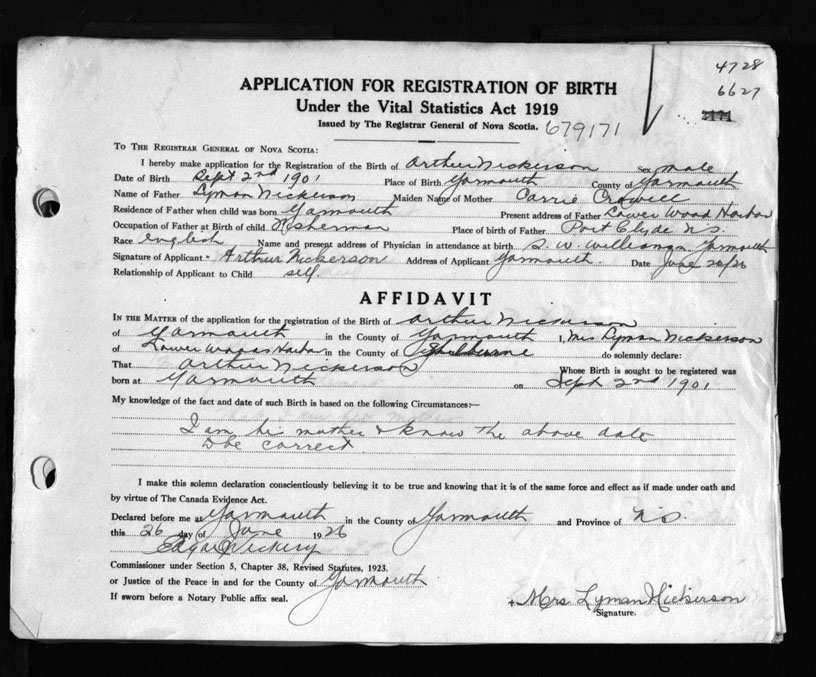 4728
6627
APPLICATION FOR REGISTRATION OF BIRTH
Under the Vital Statistics Act 1919
Issued by The Registrar General of Nova Scotia. 679171
TO THE REGISTRAR GENERAL OF NOVA SCOTIA:
I hereby make application for the Registration of the Birth of Arthur Nickerson Sex male
Date of Birth Sept 2nd 1901 Place of Birth Yarmouth County of Yarmouth
Name of Father Lyman Nickerson Maiden Name of Mother Carrie Crowell
Residence of Father when child was born Yarmouth Present address of Father Lower Wood Harbor
Occupation of Father at Birth of child Fisherman Place of birth of Father Port Clyde NS.
Race english Name and present address of Physician in attendance at birth S. W. Yarmouth
Signature of Applicant Arthur Nickerson Address of Applicant Yarmouth. Date June 26/26
Relationship of Applicant to Child self.
AFFIDAVIT
IN THE MATTER of the application for the registration of the Birth of Arthur Nickerson
of Yarmouth in the County of Yarmouth I, Mrs Lyman Nickerson
of Lower Harbor in the County of Shelburne do solemnly declare:
That Arthur Nickerson Whose Birth is sought to be registered was
born at Yarmouth on Sept 2nd 1901
My knowledge of the fact and date of such Birth is based on the following Circumstances:—
I am his mother & know the above date
to be correct
I make this solemn declaration conscientiously believing it to be true and knowing that it is of the same force and effect as if made under oath and
by virtue of The Canada Evidence Act.
Declared before me at Yarmouth in the County of Yarmouth and Province of N.S.
this 26 day of June 1926
Edgar Vickery
Commissioner under Section 5, Chapter 38, Revised Statutes, 1923,
or Justice of the Peace in and for the County of Yarmouth
If sworn before a Notary Public affix seal.
+ Mrs Lyman Nickerson
Signature.